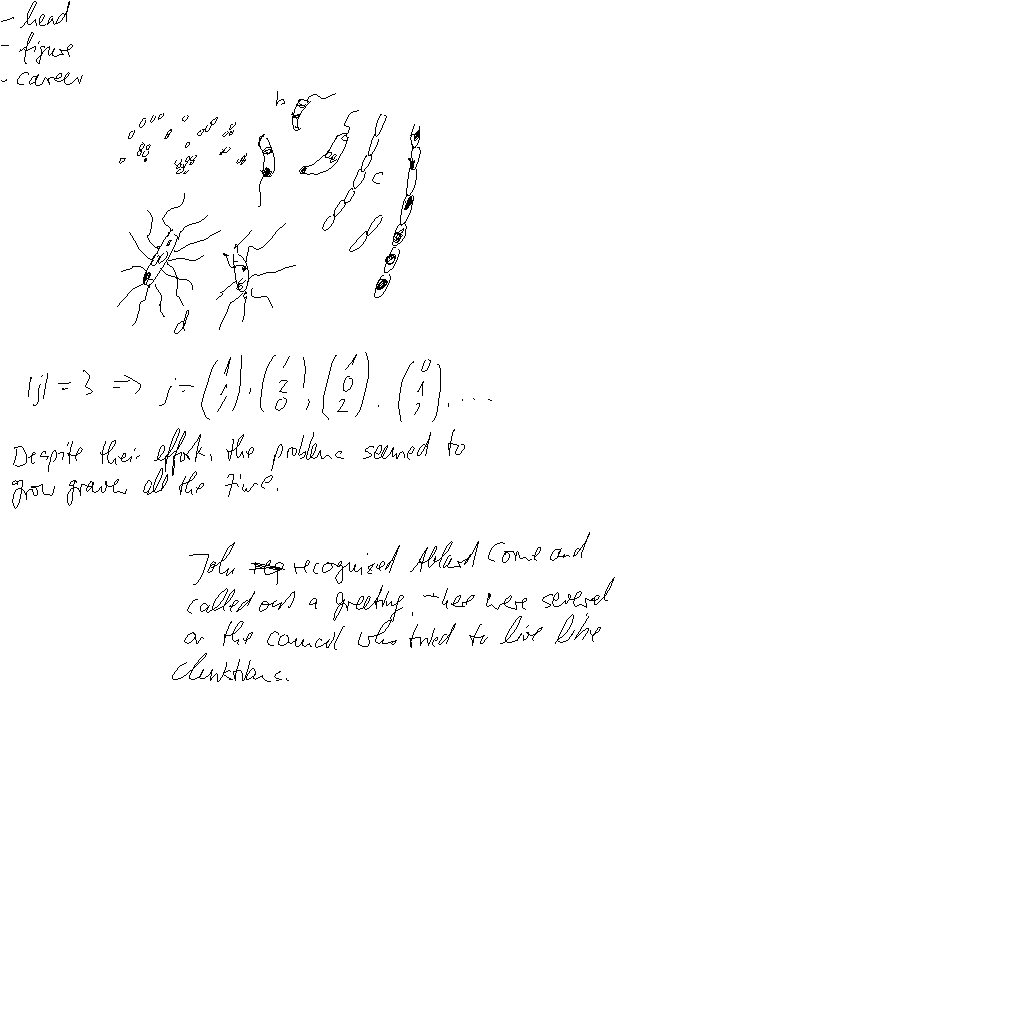 - head
- figure
- career
b
c
d
|j| = 3 => j = (1 1 1), (1 2 0), (1 0 2), (0 1 2), ....
Despite their efforts, the problems seemed to
grow graver all the time.
John recognized Abbard Corne and
called out a greeting. There were several
on the council who tried to live like
Christians.